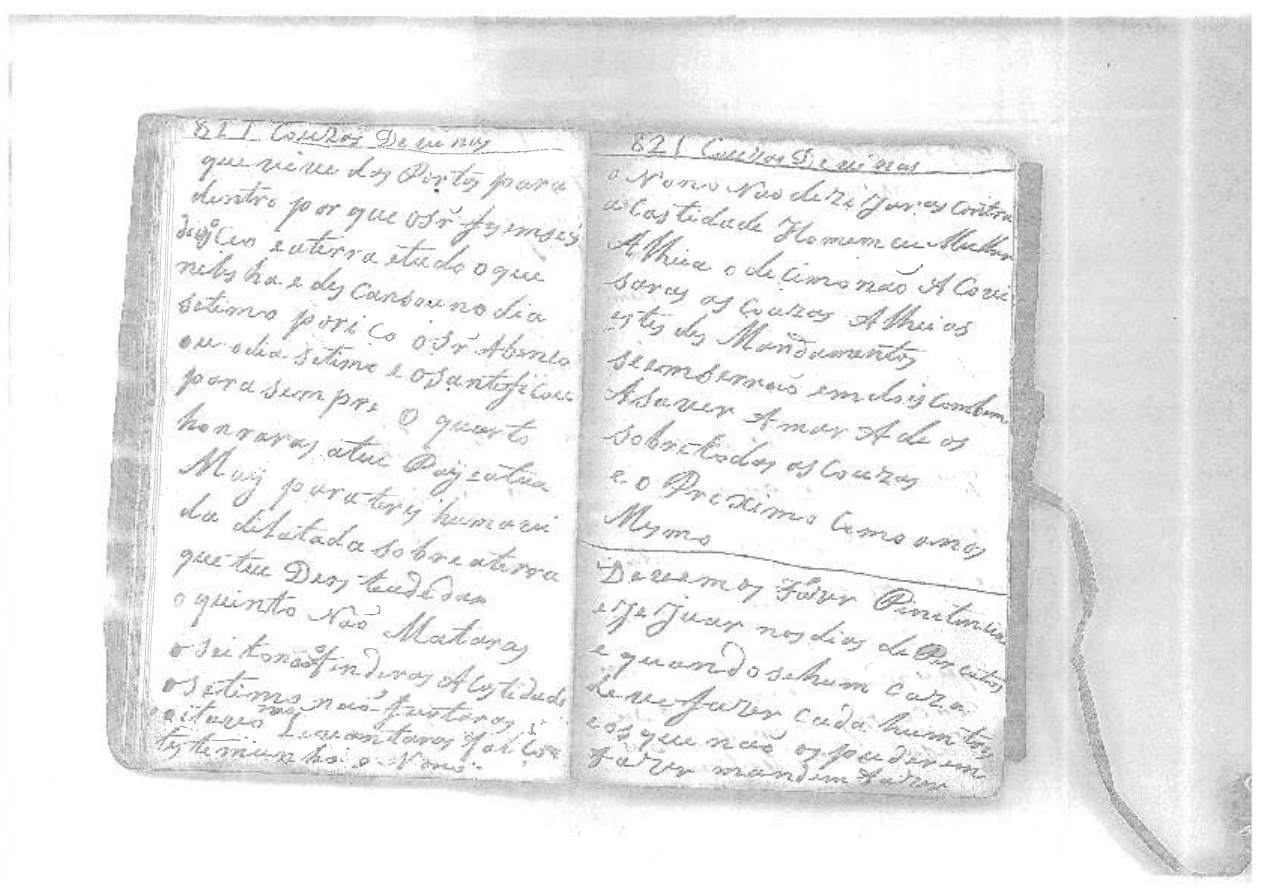 821 Couzas Devinas
que vive das Portas para
dentro por que o Sr̃ fes em seis
dias o Ceo e a terra e tudo o que
neles ha e des Cansou no dia
setimo por i Co o Sr̃ Abenco
ou o dia Setimo e o Santoficou
para sempre O quarto
honraras a teu Pay e a tua
May para teres huma vi
da dilatada sobre a terra
que teu Deos te ade dar
o quinto Não Mataras
o seisto não ofenderas A Castidade
o setimo não furtaras
oitavo não Levantaras falso
testemunho o Nono
821 Couzas Devinas
o Nono Não dezejaras Contra
a Castidade Homem ou Mulher
Alheia o decimo não A Cobi
saras as Couzas Alheias
estes des Mandamentos
se emserrão em dois Combem
A saver Amar A de os
sobre todas as Couzas
e o Procimo Como a nos
Mesmo
Devemos fazer Penetencia
e Je Juar nos dias de Perceitos
e quando se hum caza
deve fazer cada hum tos
e os que não os puderem
fazer mandem fazer